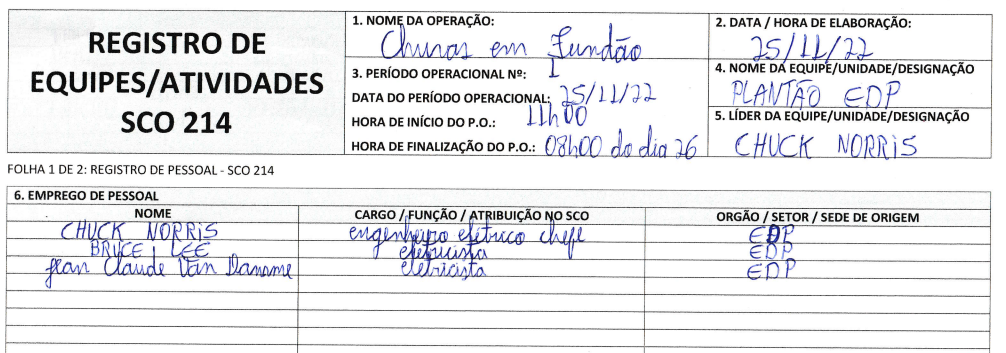 REGISTRO DE
EQUIPES/ATIVIDADES
SCO 214
1. NOME DA OPERAÇÃO:
Chuvas em Fundão
3. PERÍODO OPERACIONAL Nº: 1
DATA DO PERÍODO OPERACIONAL: 25/11/22
HORA DE INÍCIO DO P.O.: 11h00
HORA DE FINALIZAÇÃO DO P.O.: 08h00 do dia 26
2. DATA / HORA DE ELABORAÇÃO:
25/11/22
4. NOME DA EQUIPE/UNIDADE/DESIGNAÇÃO
PLANTÃO EDP
5. LÍDER DA EQUIPE/UNIDADE/DESIGNAÇÃO
CHUCK NORRIS
FOLHA 1 DE 2: REGISTRO DE PESSOAL - SCO 214
6. EMPREGO DE PESSOAL
NOME CARGO / FUNÇÃO / ATRIBUIÇÃO NO SCO ORGÃO / SETOR / SEDE DE ORIGEM
CHUCK NORRIS engenheiro elétrico chefe EDP
BRUCE LEE eletricista EDP
Jean Claude Van Damme eletricista EDP